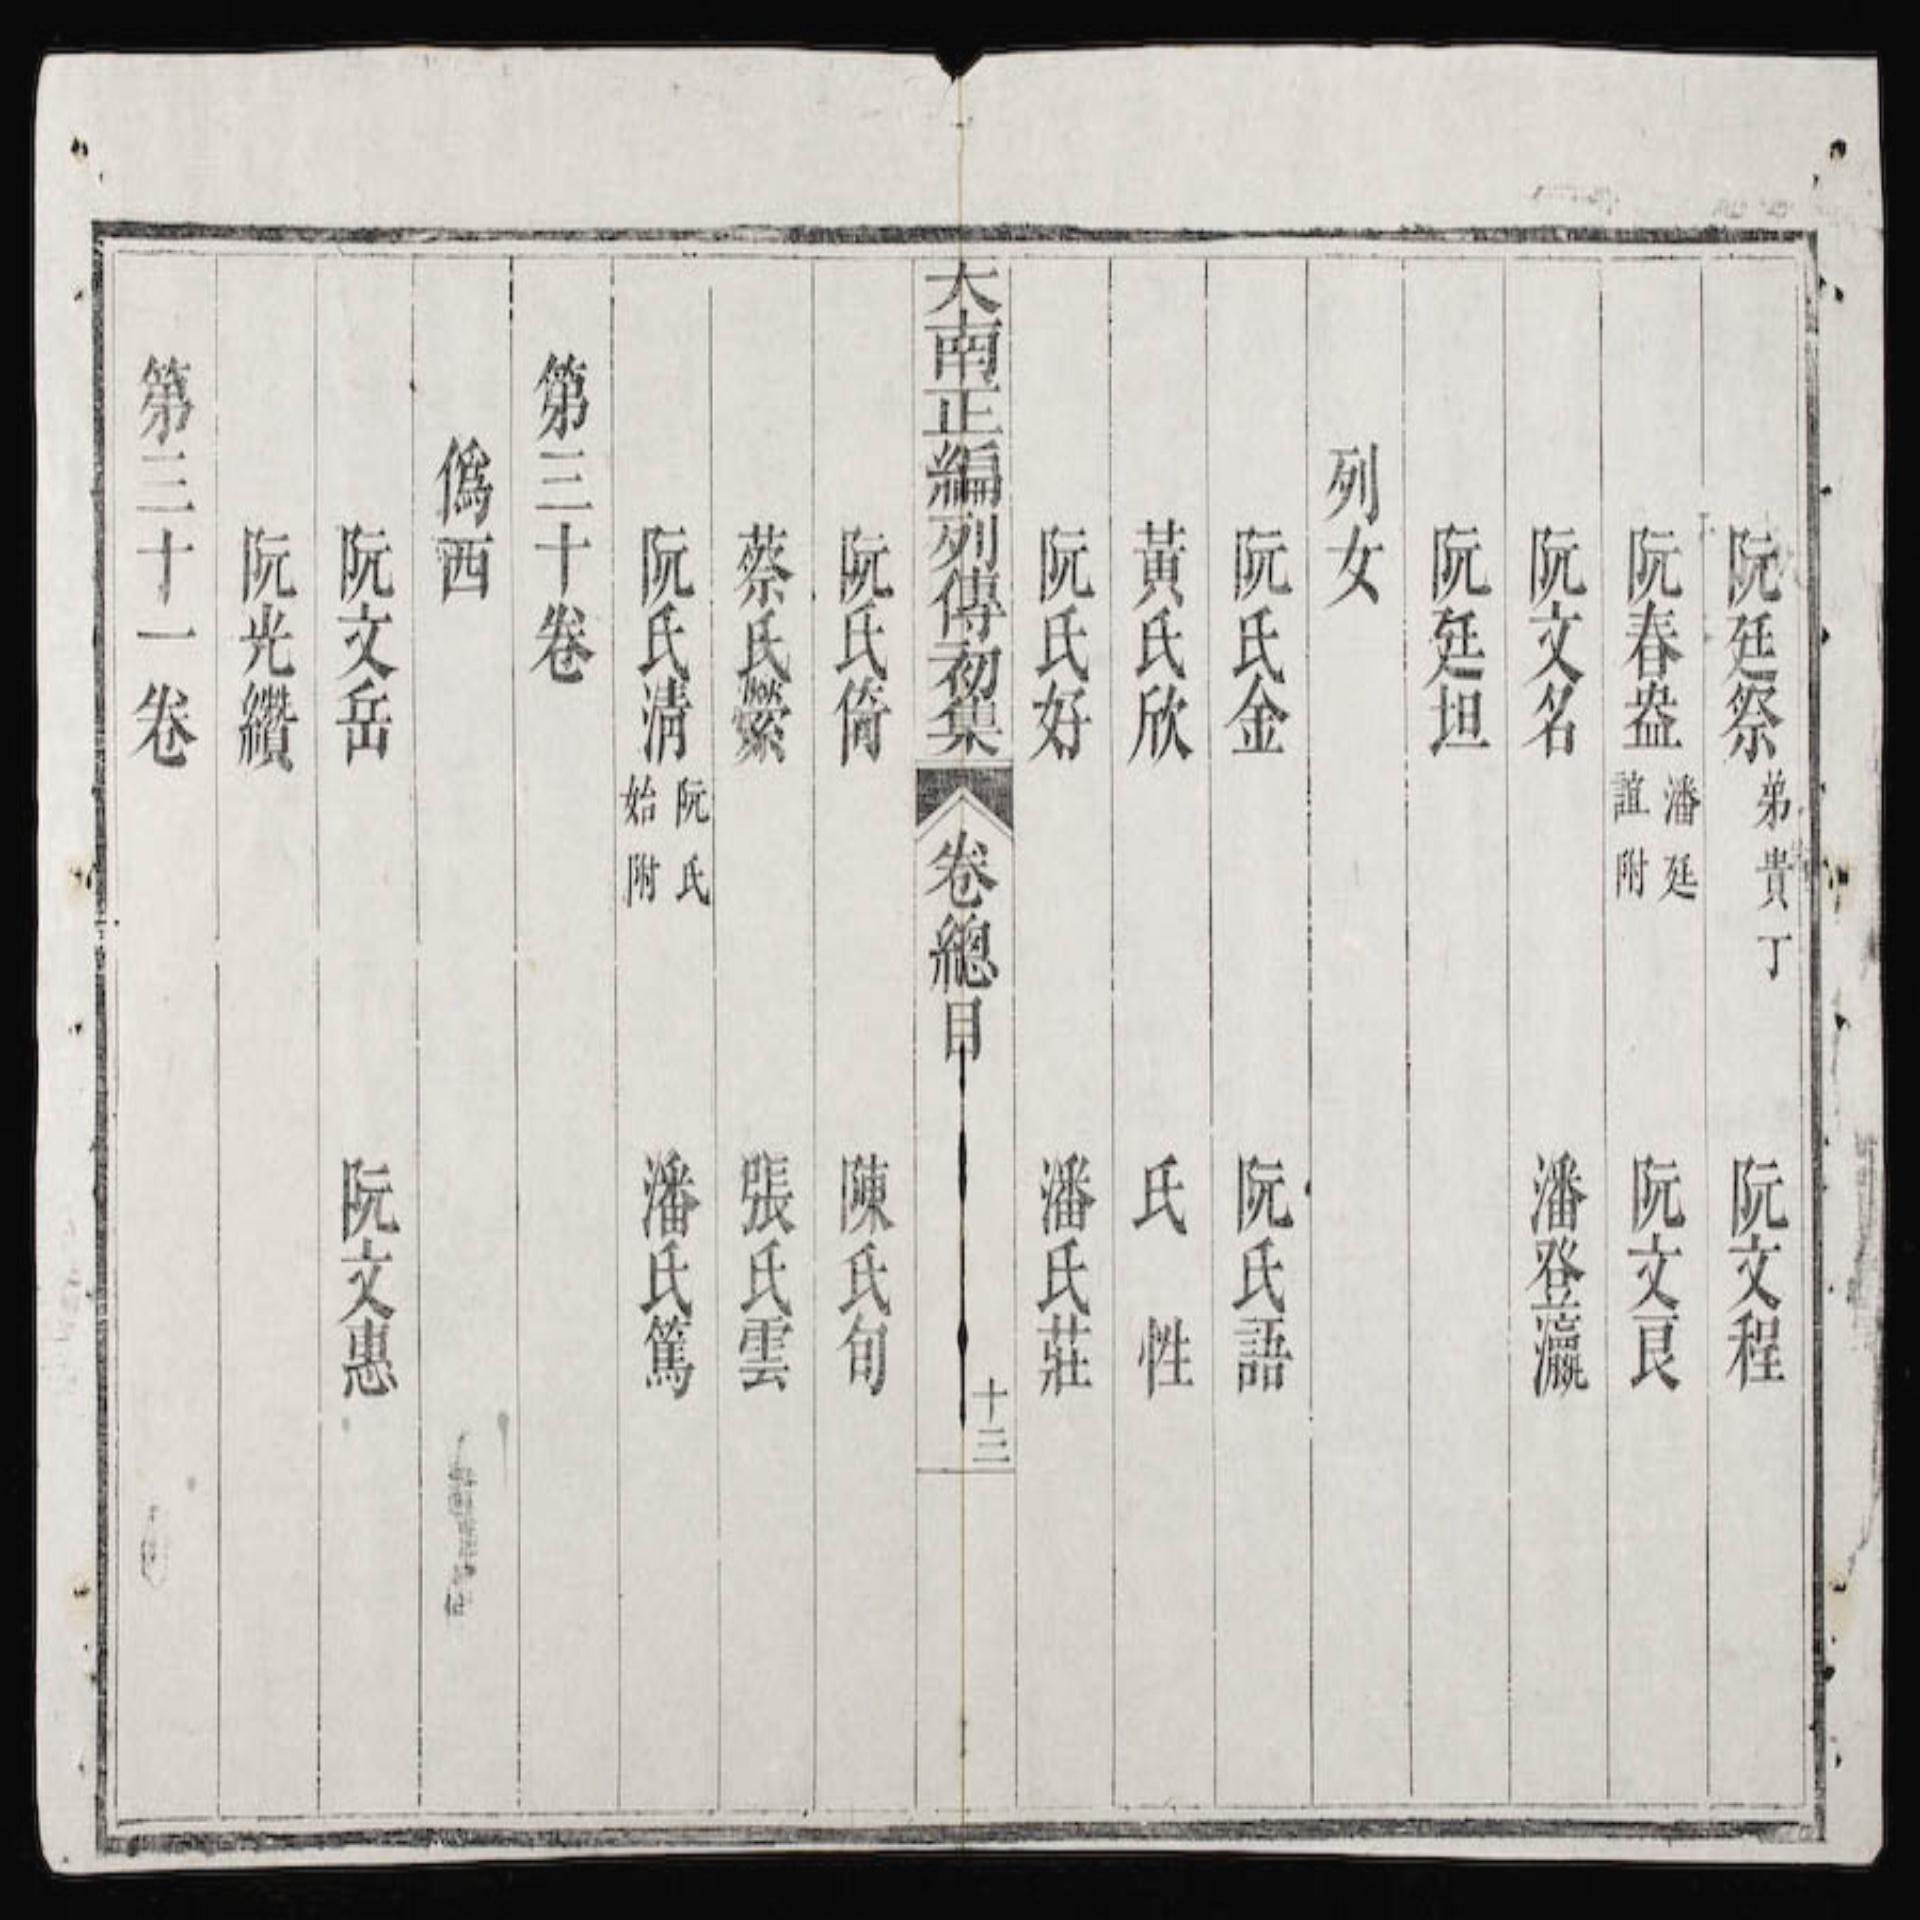 阮廷祭 弟貴丁 阮文程
阮春盎 潘廷誼附 阮文良
阮文名 潘登瀛
阮廷坦
列女
阮氏金 阮氏語
黃氏欣 氏性
阮氏好 潘氏莊
大南正編列傳初集 卷總目 十三
阮氏倚 陳氏旬
蔡氏縈 張氏雲
阮氏清 阮氏始附 潘氏篤
第三十卷
僞西
阮文岳 阮文惠
阮光纘
第三十一卷